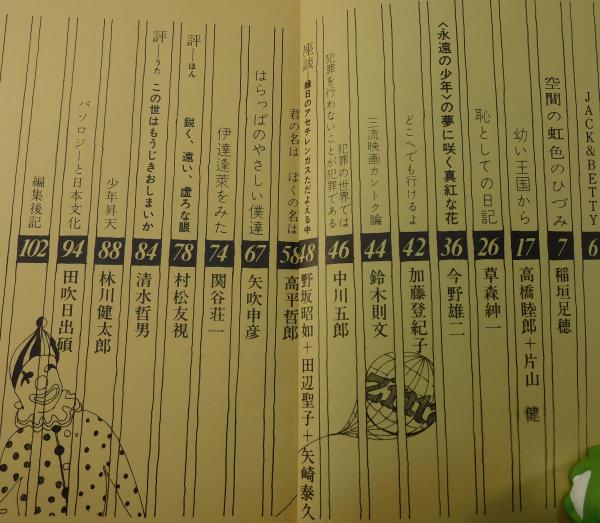 JACK&BETTY 6
空間の虹色のひづみ 7 稲垣足穂
幼い王国から 17 高橋睦郎+片山 健
恥としての日記 26 草森紳一
〈永遠の少年〉の夢に咲く真紅な花 36 今野雄二
どこへでも行けるよ 42 加藤登紀子
三流映画カントク論 44 鈴木則文
犯罪の世界では
犯罪を行わないことが犯罪である 46 中川五郎
座談——縁日のアセチレンガスただよえる中 48 野坂昭如+田辺聖子+矢崎泰久
君の名は ぼくの名は 58 高平哲郎
はらっぱのやさしい僕達 67 矢吹申彦
伊達逢萊をみた 74 関谷荘一
評——ほん 鋭く、遠い、虚ろな眼 78 村松友視
評——うた この世はもうじきおしまいか 84 清水哲男
少年昇天 88 林川健太郎
パソロジーと日本文化 94 田吹日出碩
編集後記 102